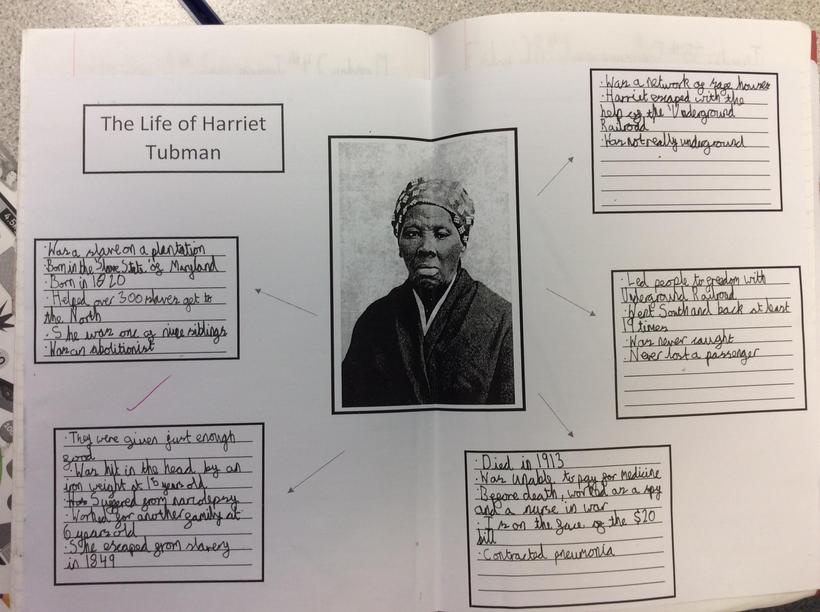 The Life of Harriet
Tubman
·Was a slave on a plantation
·Born in the 'Slave State' of Maryland
·Born in 1820
·Helped over 300 slaves get to
the North
·She was one of nine siblings
·Was an abolitionist
·They were given just enough
food
·Was hit in the head by an
iron weight at 15 years old
·Suffered from narcolepsy
·Worked for another family at
6 years old
·She escaped from slavery
in 1849
·Was a network of safe houses
·Harriet escaped with the
help of the Underground
Railroad
·Was not really underground
·Led people to freedom with
Underground Railroad
·Went South and back at least
19 times
·Was never caught
·Never lost a passenger
·Died in 1913
·Was unable to pay for medicine
·Before death, worked as a spy
and a nurse in war
·Is on the face of the $20
bill
·Contracted pneumonia